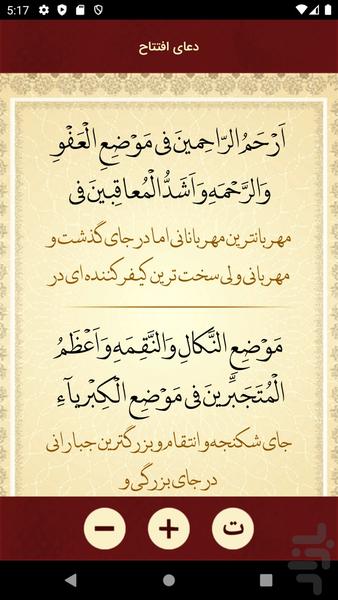 5:17
دعای افتتاح
اَرْحَمُ الرّاحِمینَ فی مَوْضِعِ الْعَفْوِ
وَالرَّحْمَهِ وَاَشَدُّ الْمُعاقِبینَ فی
مهربانترین مهربانانی اما در جای گذشت و
مهربانی ولی سخت ترین کیفر کننده ای در
مَوْضِعِ النَّکالِ وَالنَّقِمَهِ وَاَعْظَمُ
الْمُتَجَبِّرینَ فی مَوْضِعِ الْکِبْرِیاَّءِ
جای شکنجه و انتقام و بزرگترین جبارانی
در جای بزرگی و
ت
بازار